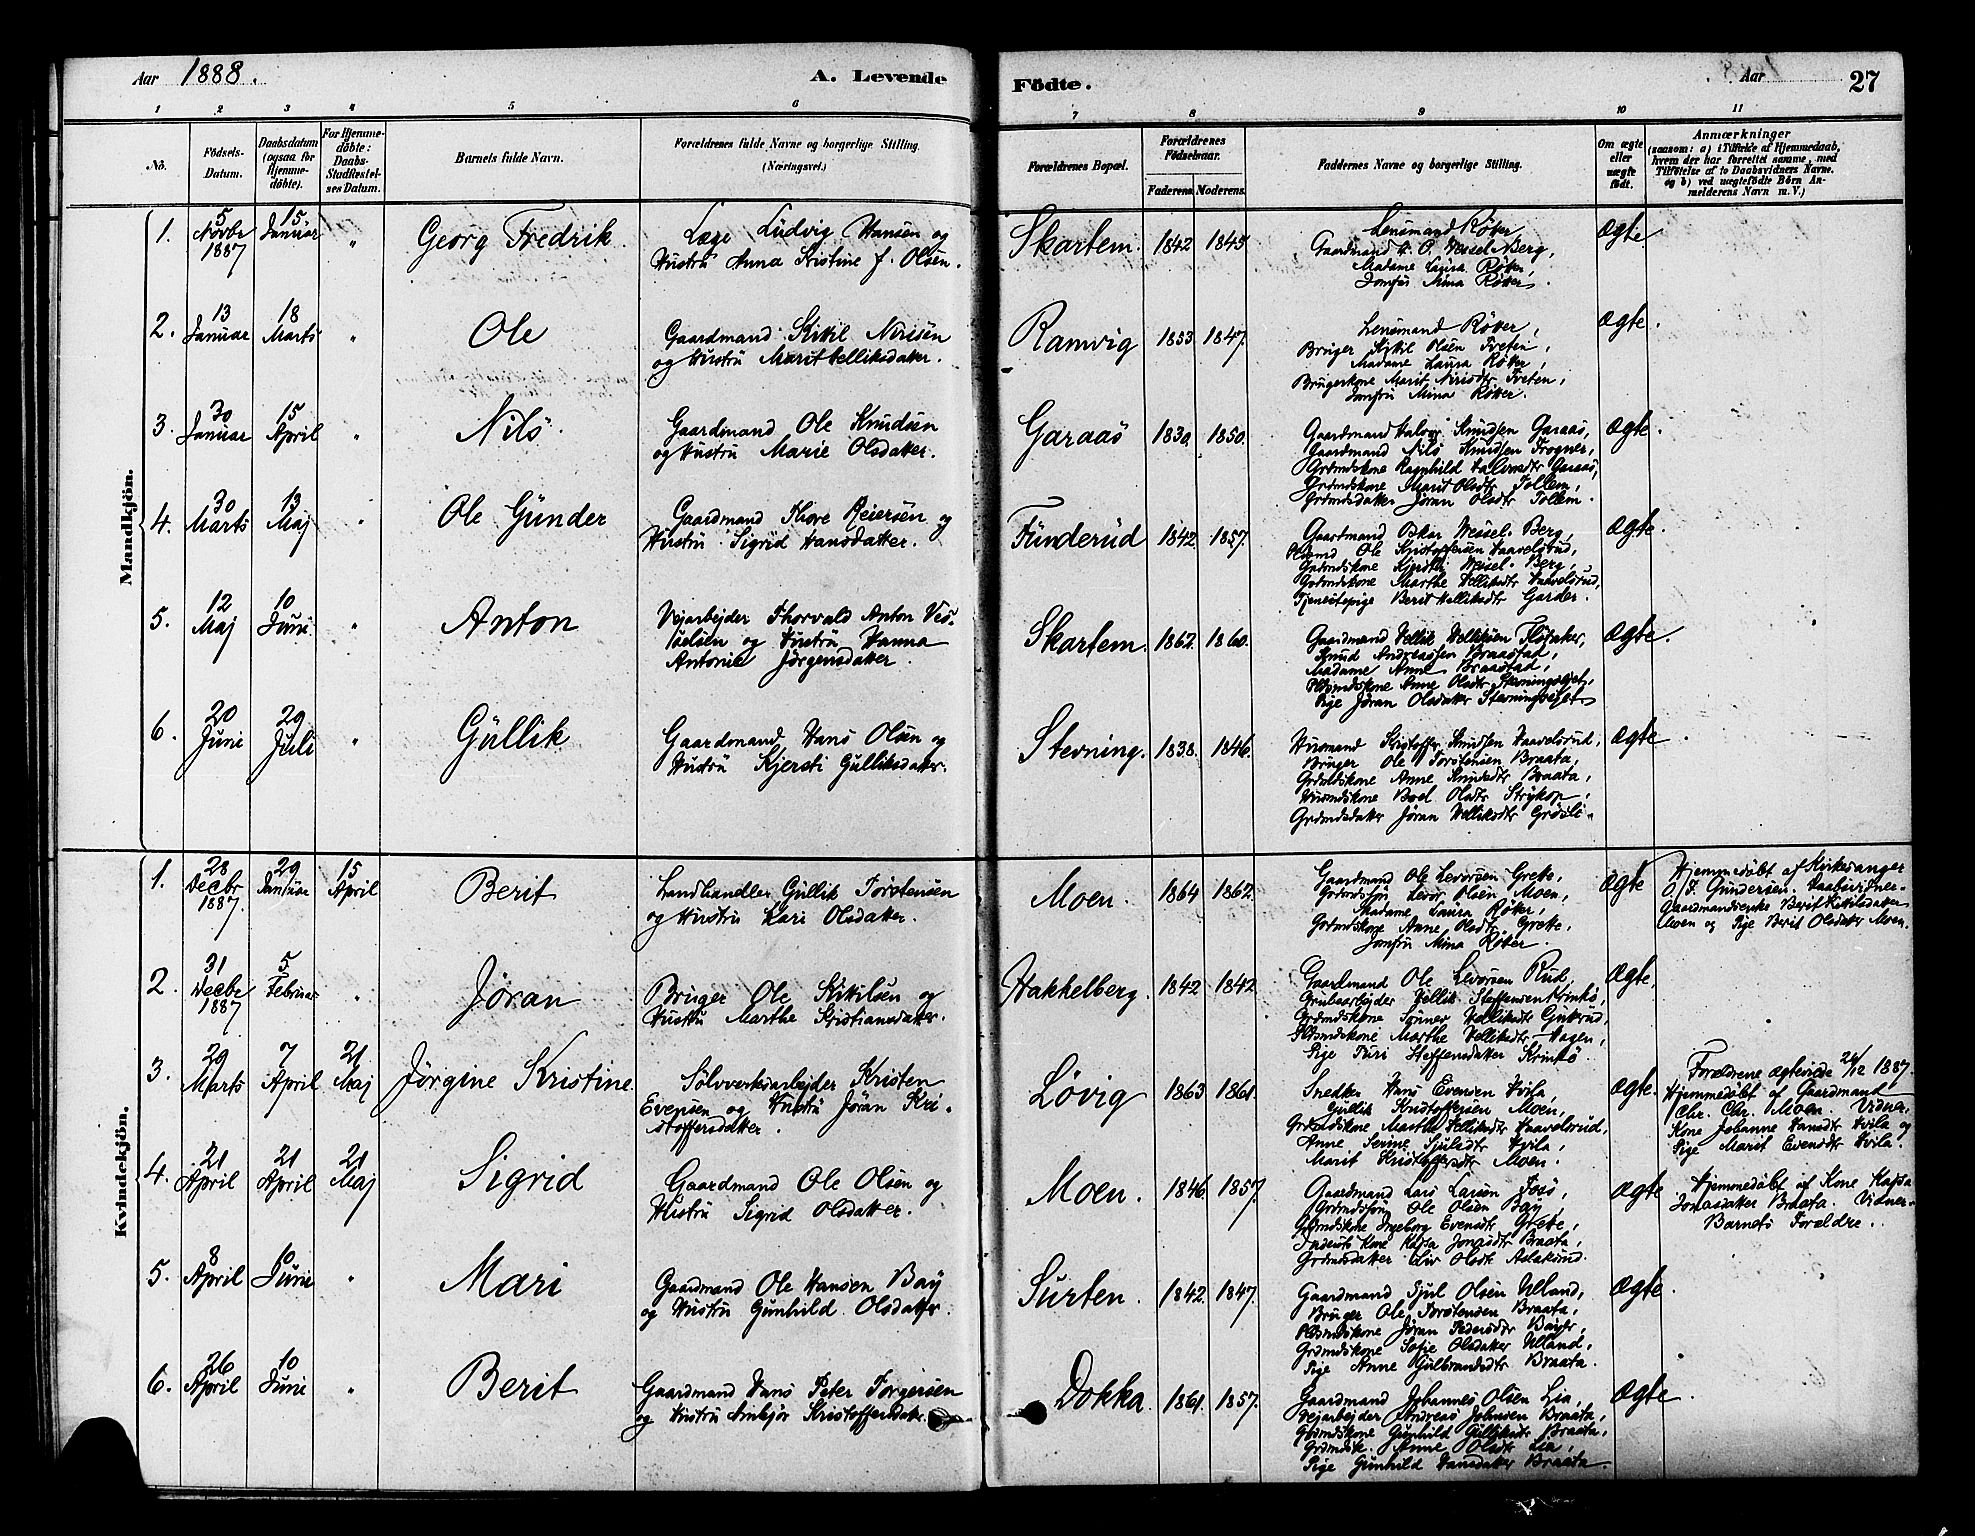 Aar 1888. A. Levende Födte. Aar 27
1 2 3 4 5 6 7 8 9 10 11
No. Födsels-Datum. Daabsdatum (ogsaa for Hjemme-döbte). For Hjemme-döbte: Daabs-Stadfæstel-ses Datum. Barnets fulde Navn. Forældrenes fulde Navne og borgerlige Stilling. (Næringsvei.) Forældrenes Bopæl. Forældrenes Födselsaar. Faderens. Moderens. Faddernes Navne og borgerlige Stilling. Om ægte eller uægte födt. Anmærkninger (saasom: a) i Tilfælde af Hjemmedaab, hvem der har forrettet samme, med Tilföielse af to Daabsvidners Navne. og b) ved uægtefödte Börn An-melderens Navn m. V.)
Mandkjön.
1. 5 Novbr 1887 15 Januar " Georg Fredrik. Læge Ludvig Hansen og
Hustru Anna Kristine f. Olsen.
Skartem. 1842 1845
Lensmand Röker
Gaardmand O. Wessel-Berg,
Madame Laura Röker,
Jomfru Mina Röker.
Ægte
2. 13 Januar 18 Marts " Ole
Gaardmand Kittil Nirisen
og Hustru Marit Helliksdatter.
Ramvig 1853 1847.
Lensmand Röker,
Bruger Kittil Olsen Tveten,
Madame Laura Röker,
Brugerkone Marit Nirisdtr Tveten,
Jomfru Mina Röker.
Ægte.
3. 30 Januar 15 April " Nils.
Gaardmand Ole Knudsen
og Hustru Marie Olsdatter.
Garaas 1830. 1850.
Gaardmand Halvor Knudsen Garaas,
Gaardmand Nils Knudsen Frogner,
Grdmdskone Ragnhild Garaas,
Grdmdskone Marit Olsdtr Tollem,
Grdmdsdatter Jöran Olsdtr Tollem.
Ægte.
4. 30 Marts 13 Maj " Ole Gunder
Gaardmand Thore Reiersen og
Hustru Sigrid Hansdatter.
Funderud 1842 1857.
Gaardmand Oskar Wessel-Berg,
Ole Kristoffersen Haavelsrud,
Grdmdskone Wessel-Berg,
Grdmdskone Marthe Helliksdtr Haavelsrud,
Tjenestepige Berit Helliksdtr Garder.
Ægte.
5. 12 Maj 10 Juni. " Anton
Vejarbejder Thorvald Anton
og Hustru Hanna
Antonie Jörgensdatter.
Skartem. 1862. 1860.
Gaardmand Hellik Helliksen
Knud Andreassen Braastad,
Madame Anne Braastad,
Anne Olsdtr
Pige Jöran Olsdatter
Ægte.
6. 20 Juni 29 Juli " Gullik
Gaardmand Hans Olsen og
Hustru Kjersti Gulliksdatter.
Stevning. 1838. 1846.
Husmand Kristoffer Knudsen Haavelsrud,
Bruger Ole Torstensen Braata,
Anne Knudsdtr Braata,
Husmdskone Boel Olsdtr
Grdmdsdatter Jöran Helliksdtr Grösli.
Ægte.
Kvindekjön.
1. 28 Decbr 1887. 29 Januar 15 April Berit
Landhandler Gullik Torstensen
og Hustru Kari Olsdatter.
Moen. 1864 1862.
Gaardmand Ole Levorsen Grette,
Levor Olsen Moen,
Madame Laura Röker,
Grdmdskone Anne Olsdtr Grette,
Jomfru Mina Röker.
Ægte
Hjemmedöbt af Kirkesanger
O. J. Gundersen. Daabsvidner
Gaardmandsenke Berit Kittilsdatter
Moen og Pige Berit Olsdatter Moen.
2. 31 Decbr 1887 5 Februar " Jöran
Bruger Ole Kittilsen og
Hustru Marthe Kristiansdatter.
Hakkelberg. 1842 1842
Gaardmand Ole Levorsen Rud,
Grubearbejder Hellik Steffensen
Grdmdskone Helliksdtr
Marthe Helliksdtr Hagen,
Pige Turi Steffensdatter
Ægte.
3. 29 Marts 7 April 21 Maj Jörgine Kristine.
Sölvverksarbejder Kristen
Evensen og Hustru Jöran Kri-
stoffersdatter.
Lövig 1863 1861.
Snedker Hans Evensen Hvila,
Gullik Kristoffersen Moen,
Grdmdskone Marthe Helliksdtr Haavelsrud,
Anne Serine Hvila,
Marit Kristoffersdtr Moen.
Ægte.
Forældrene ægteviede 1887
Hjemmedöbt af Gaardmand
Chr. Chr. Moen. Vidner,
Kone Johanne Hansdtr Hvila og
Pige Marit Evensdtr Hvila.
4. 21 April 21 April 21 Maj Sigrid
Gaardmand Ole Olsen og
Hustru Sigrid Olsdatter.
Moen. 1846 1857.
Gaardmand Lars Larsen Foss,
Ole Olsen Bay,
Grdmdskone Ingeborg Evensdtr Grette,
Kone Kajsa Jonasdtr Braata,
Grdmdsdatter Liv Olsdtr Aslaksrud.
Ægte
Hjemmedöbt af Kone Kajsa
Jonasdatter Braata. Vidner
Barnets Forældre.
5. 8 April 10 Juni " Mari
Gaardmand Ole Hansen Bay
og Hustru Gunhild Olsdatter.
Surten. 1842 1847.
Gaardmand Sjul Olsen Ulland,
Bruger Ole Torstensen Braata,
Jöran Pedersdtr
Grdmdskone Sofie Olsdatter Ulland,
Pige Anne Gulbrandsdtr Braata.
Ægte.
6. 26 April 10 Juni " Berit
Gaardmand Hans Peter Torgersen
og Hustru Kristoffersdatter
Dokka. 1861. 1857.
Gaardmand Johannes Olsen Lia,
Vejarbejder Andreas Johnsen Braata,
Gunhild Gulliksdtr Braata,
Anne Olsdtr Lia,
Pige Gunhild Hansdatter Braata.
Ægte.